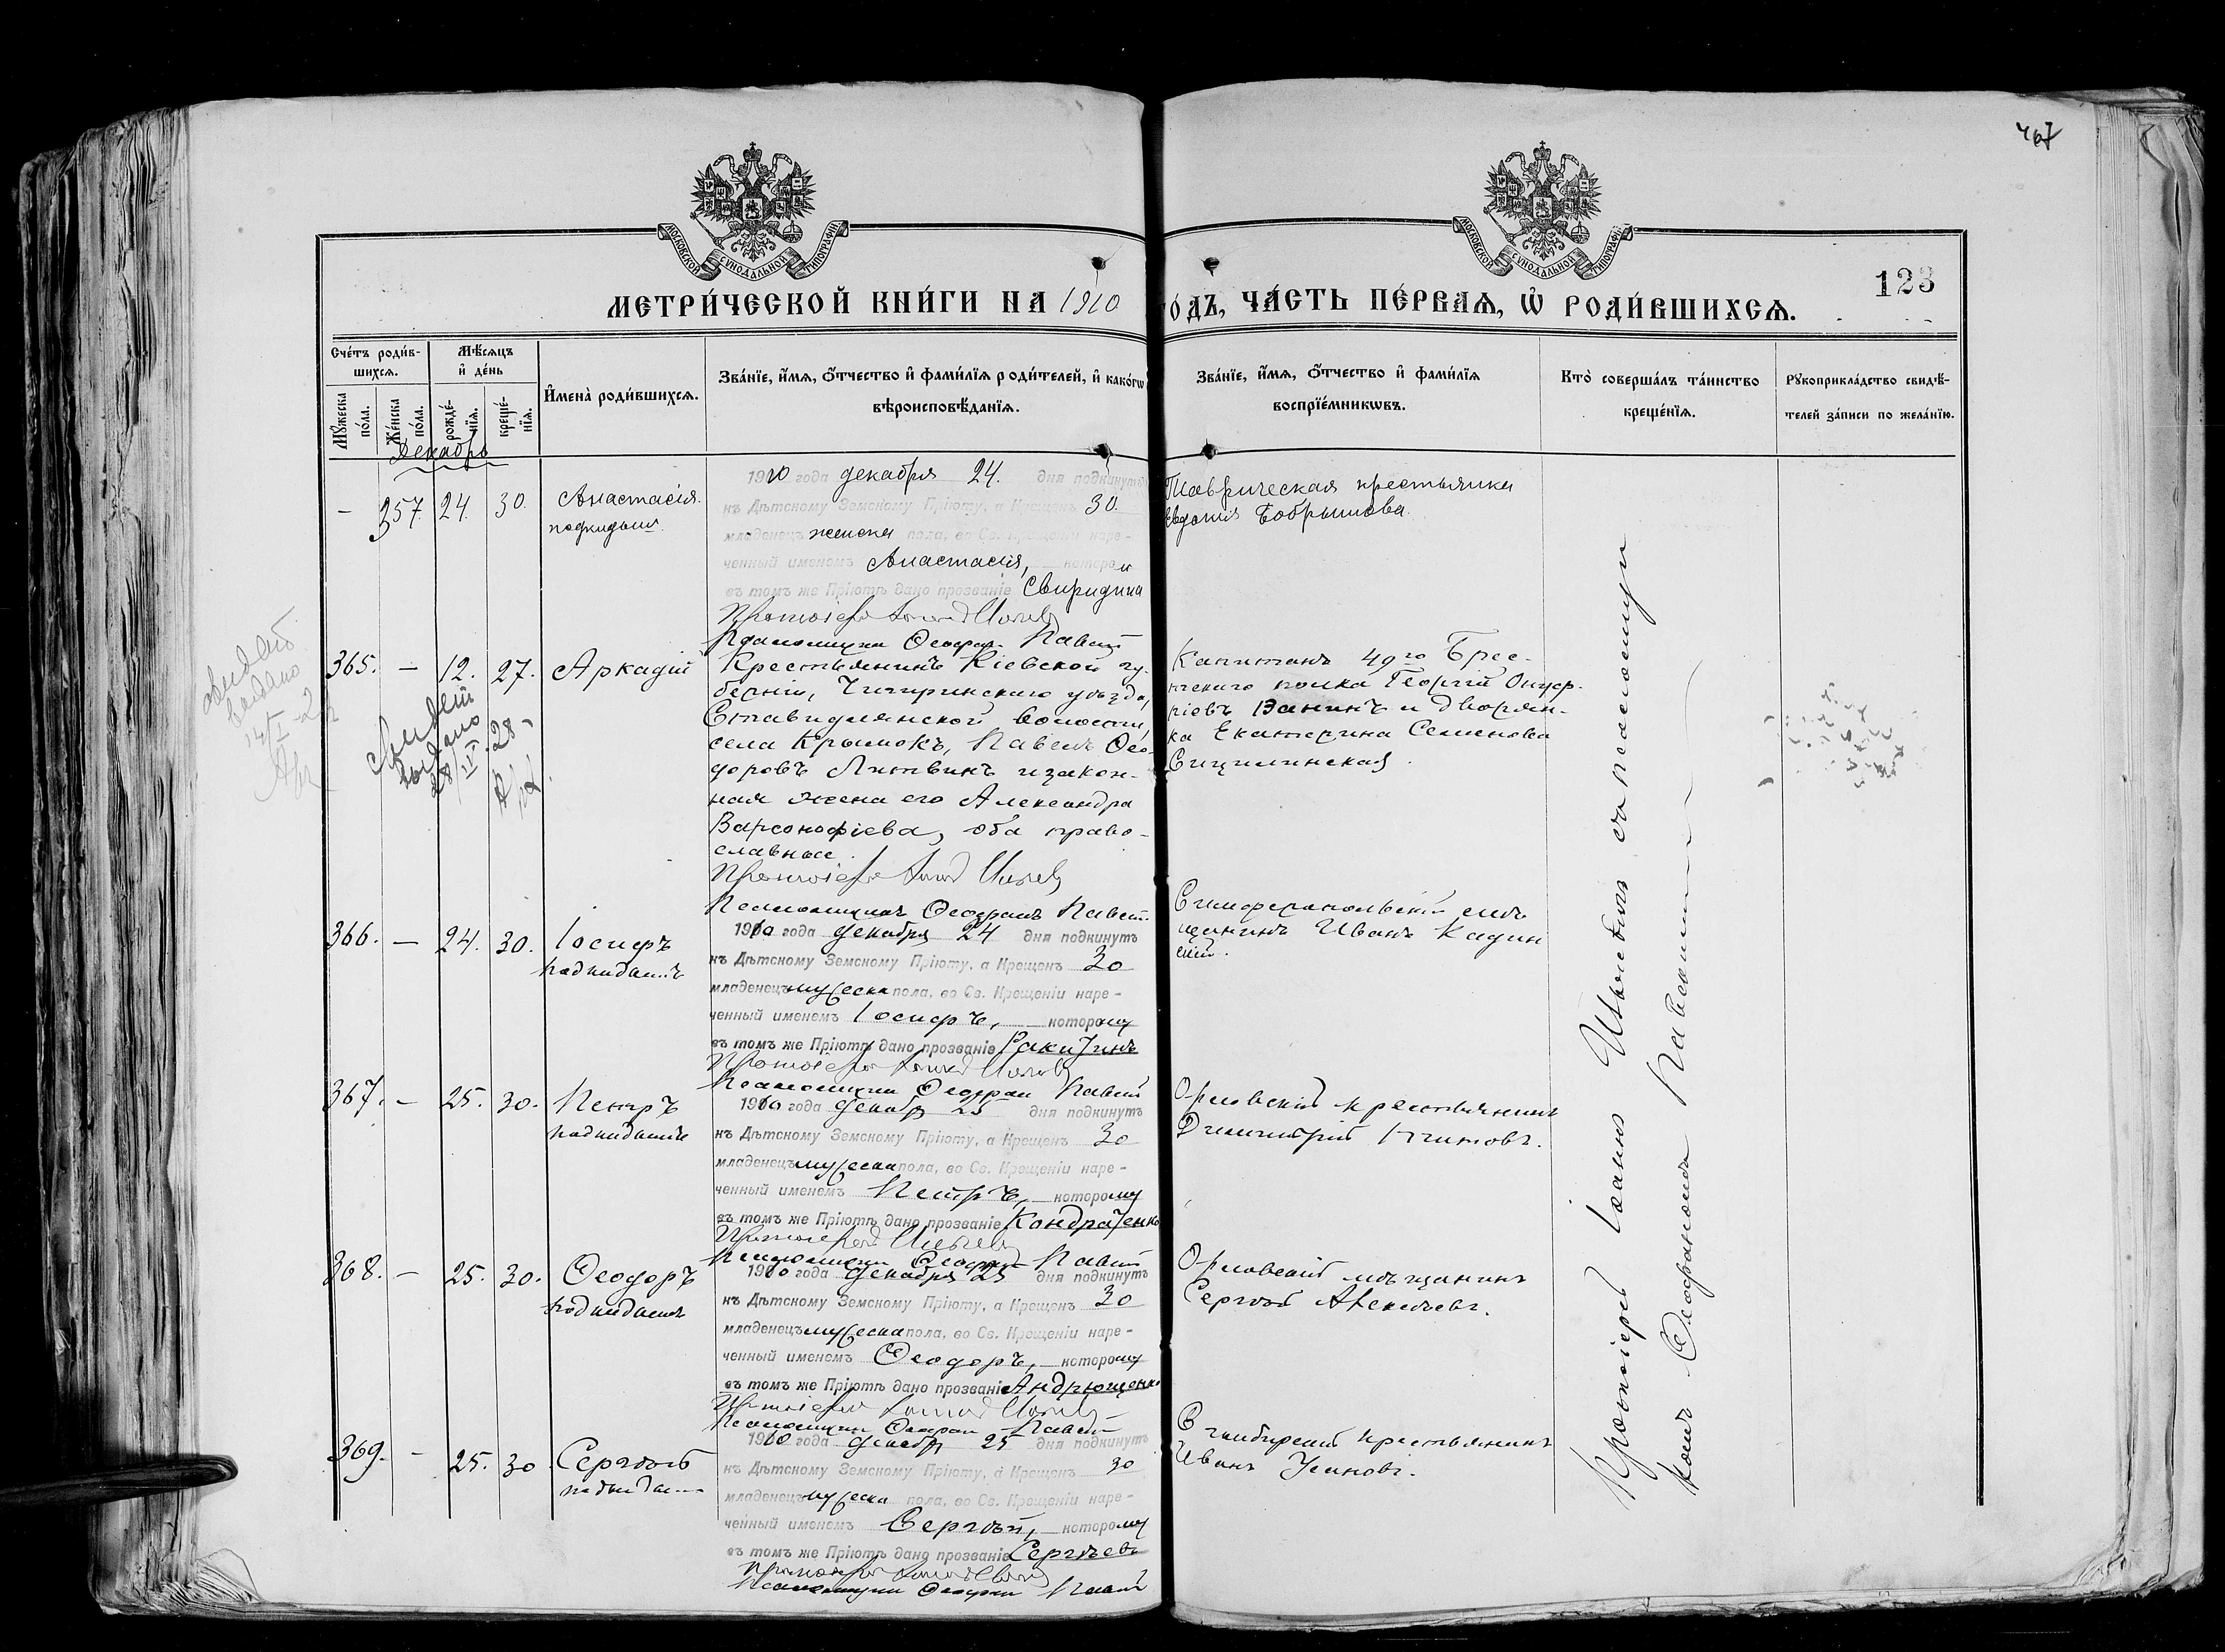 467
МОСКОВСКОЙ СѴНОДАЛЬНОЙ ТИПОГРАФІИ
МОСКОВСКОЙ СѴНОДАЛЬНОЙ ТИПОГРАФІИ
123
МЕТРИ́ЧЕСКОЙ КНИ́ГИ НА 1910
О́ДЪ, ЧА́СТЬ ПЕ́РВАѦ, Ѡ҆ РОДИ́ВШИХСѦ.
Сче́тъ роди́в-
шихсѧ.
Мꙋ́жеска по́ла.
Же́нска по́ла.
Мѣ́сѧцъ
и҆ де́нь
рожде́-нїѧ.
креще́-нїѧ.
И҆мена̀ роди́вшихсѧ.
Зва́нїе, и҆́мѧ, ѻ҆́тчество и҆ фами́лїѧ роди́телей, и҆ како́гѡ
вѣроисповѣ́данїѧ.
Зва́нїе, и҆́мѧ, ѻ҆́тчество и҆ фами́лїѧ
воспрїе́мникѡвъ.
Кто̀ соверша́лъ та́инство
креще́нїѧ.
Рꙋкоприкла́дство свидѣ́-
телей за́писи по жела́нїю.
Декабрь
- 357. 24. 30. Анастасія.
подкидыш.
1910 года декабря 24. дня подкинутъ
къ Дѣтскому Земскому Пріюту, а Крещенъ 30.
младенецъ женска пола, во Св. Крещеніи наре-
ченный именемъ Анастасія, которой
въ томъ же Пріютѣ дано прозваніе Свиридина
Протоіерей
Псаломщикъ Ѳеофан Павсит
Таврическая крестьянка
Евдокія Бобрышова.
365. — 12. 27. Аркадій
Крестьянинъ Кіевской гу-
берніи, Чигиринскаго уѣзда,
Ставидлянской волости,
села Крымокъ, Павелъ Ѳео-
доровъ Литвинъ и закон-
ная жена его Александра
Варсонофіева, оба право-
славные.
Протоіерей
Псаломщикъ Ѳеофанъ
Капитанъ 49го Брес-
тскаго полка Георгій Онуф-
ріевъ Ванинъ и дворян-
ка Екатерина Семенова
Сицилинская.
выдано
14/I
выдано
28/II 28
366. — 24. 30. Іосифъ
подкидышъ
1910 года декабря 24 дня подкинутъ
къ Дѣтскому Земскому Пріюту, а Крещенъ 30
младенецъ мужеска пола, во Св. Крещеніи наре-
ченный именемъ Іосифъ, которому
въ томъ же Пріютѣ дано прозваніе Ракитинъ
Протоіерей
Псаломщикъ Ѳеофан
Симферопольскій мѣ-
щанинъ Иванъ Кадин
скій.
367. — 25. 30. Петръ
подкидышъ
1910 года декабр 25 дня подкинутъ
къ Дѣтскому Земскому Пріюту, а Крещенъ 30
младенецъ мужеска пола, во Св. Крещеніи наре-
ченный именемъ Петръ, которому
въ томъ же Пріютѣ дано прозваніе Кондратенко
Протоіерей
Псаломщикъ Ѳеофан
Орловскій крестьянинъ
Димитрій
368. — 25. 30. Ѳеодоръ
подкидышъ
1910 года декабря 25 дня подкинутъ
къ Дѣтскому Земскому Пріюту, а Крещенъ 30
младенецъ мужеска пола, во Св. Крещеніи наре-
ченный именемъ Ѳеодоръ, которому
въ томъ же Пріютѣ дано прозваніе Андрющенко
Протоіерей
Псаломщикъ Ѳеофан
Орловскій мѣщанинъ
Сергѣй
369. — 25. 30 Сергѣй
подкидыш
1910 года декабр 25 дня подкинутъ
къ Дѣтскому Земскому Пріюту, а Крещенъ 30
младенецъ мужеска пола, во Св. Крещеніи наре-
ченный именемъ Сергѣй, которому
въ томъ же Пріютѣ дано прозваніе Сергѣевъ
Протоіерей
Псаломщикъ Ѳеофан
Симбирскій крестьянинъ
Иванъ Усановъ.
Протоіерей Іоаннъ съ псаломщи
комъ Ѳеофаномъ